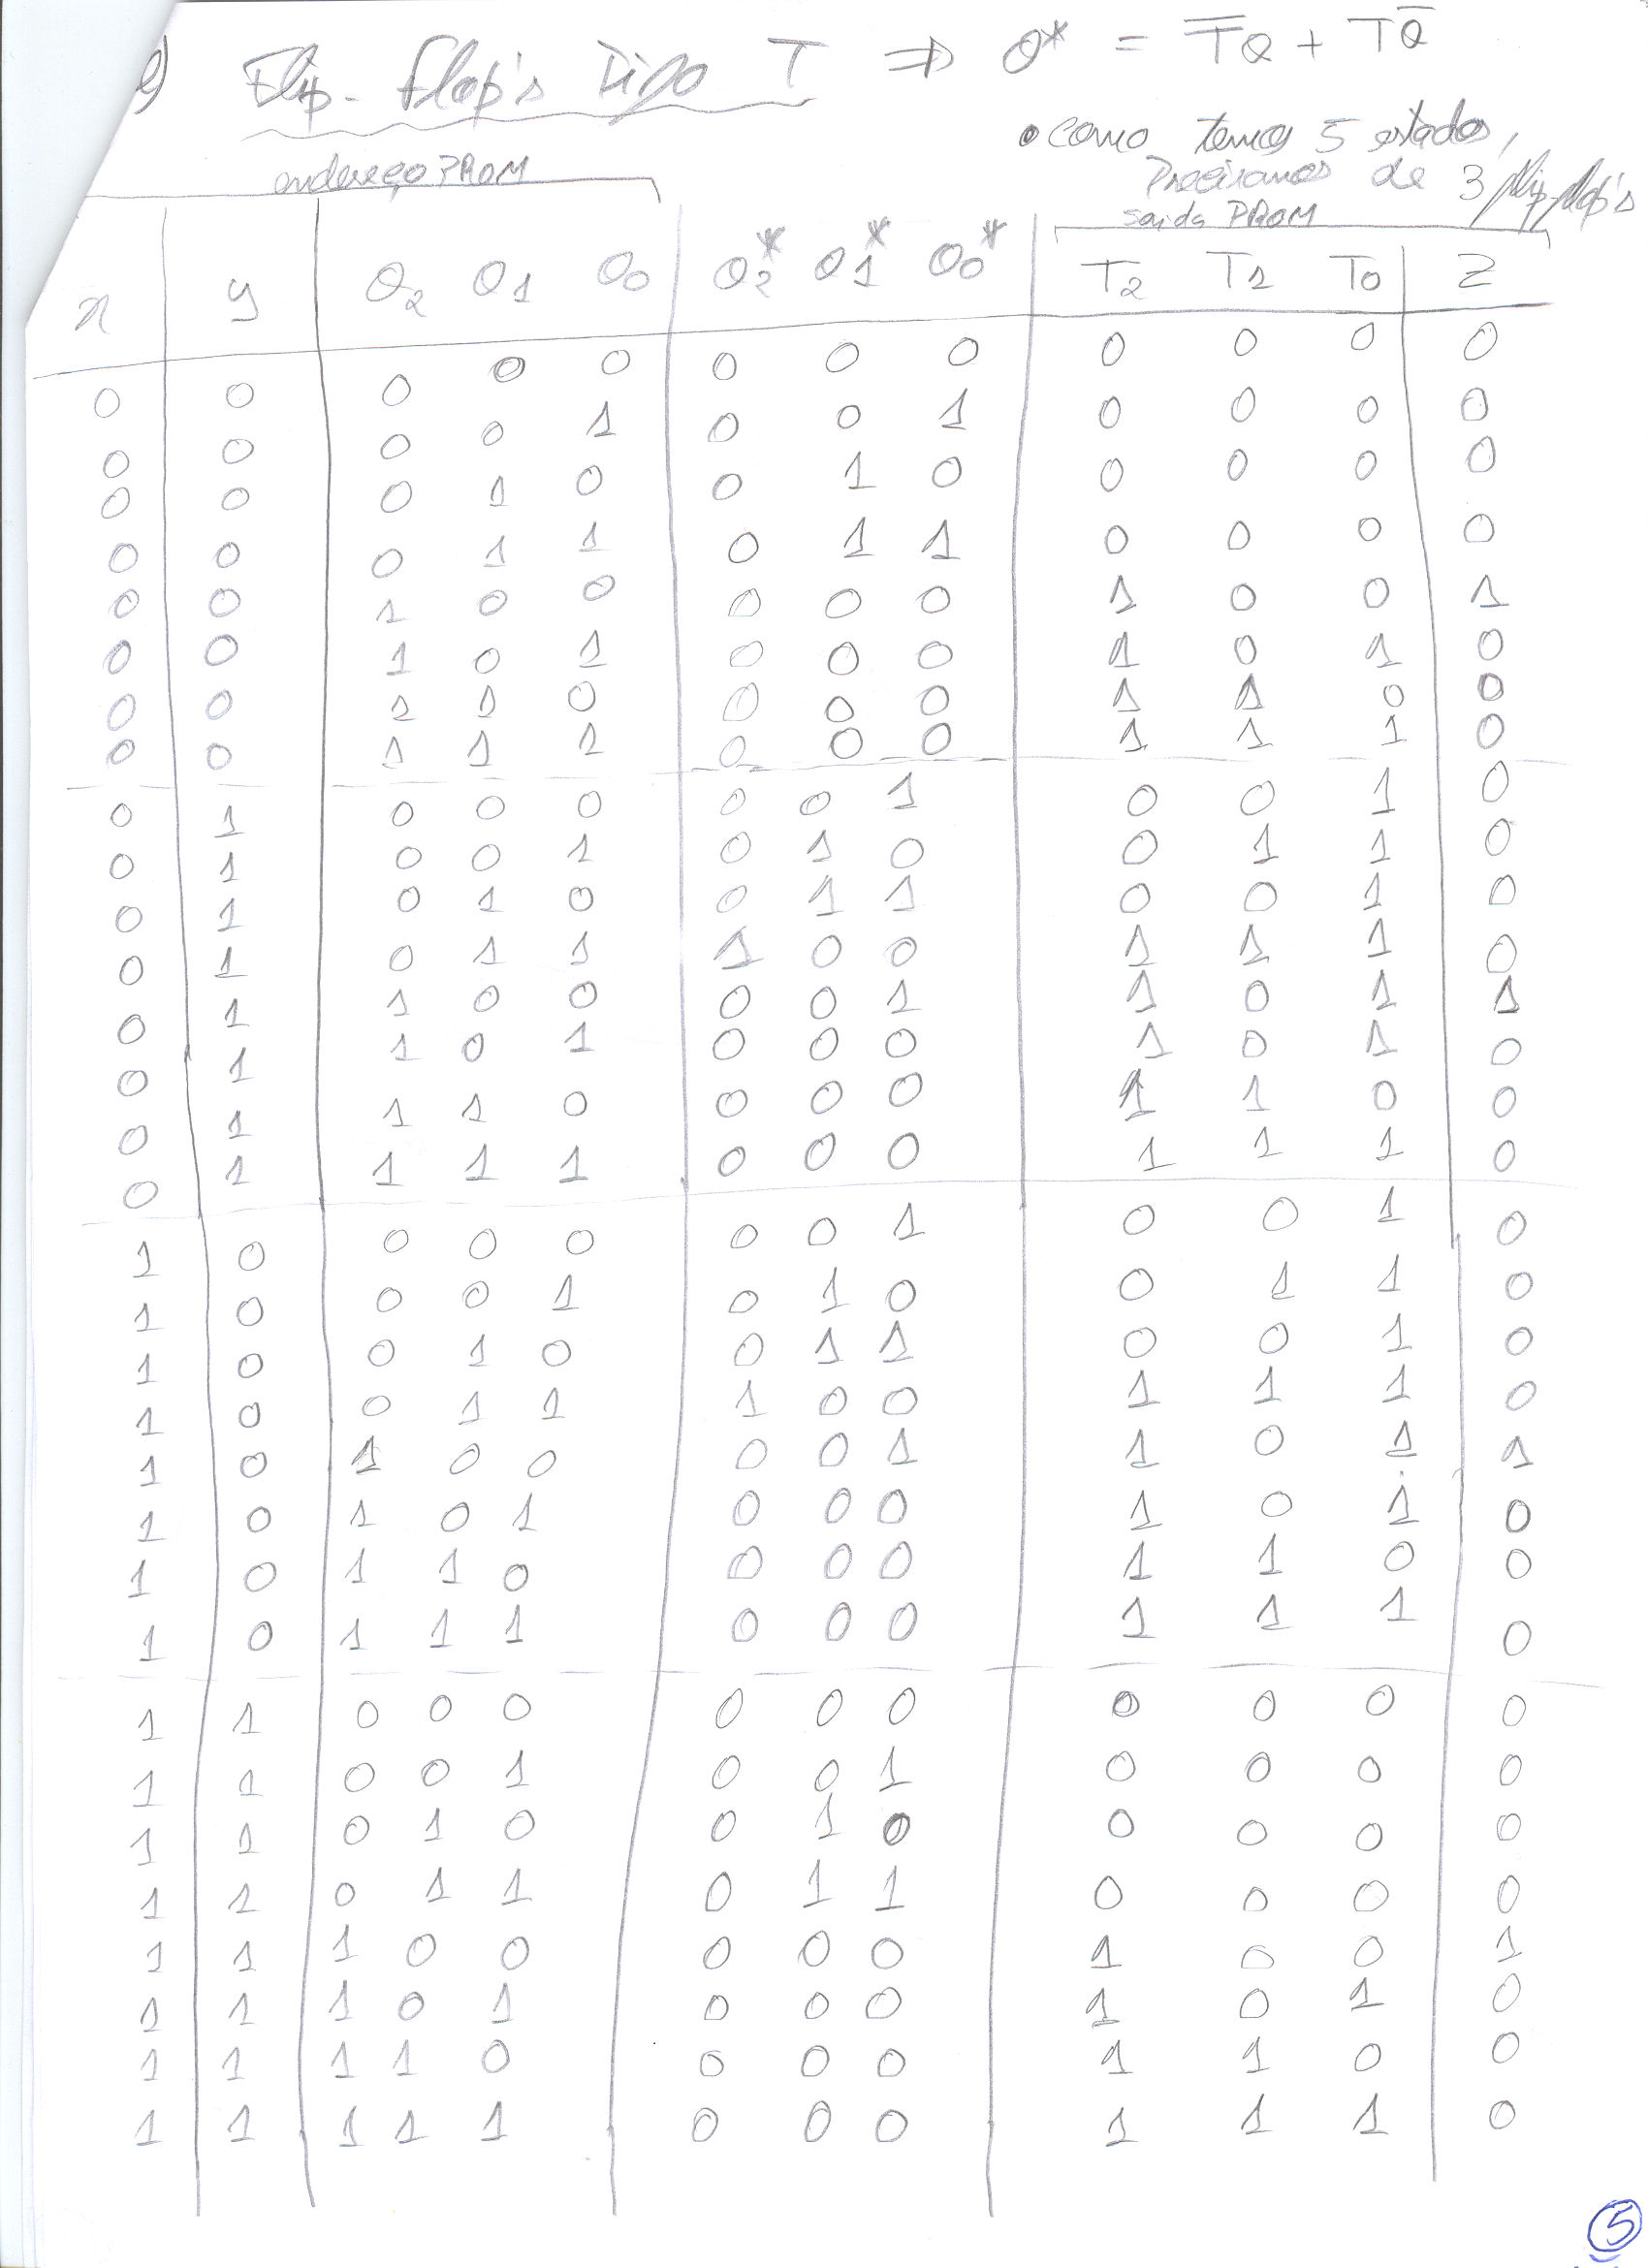 e) Flip-flop's Tipo T ⇒ Q* = T̅Q + TQ̅
• como temos 5 estados,
Precisamos de 3 flip-flop's
endereço PROM saída PROM
x y Q2 Q1 Q0 Q2* Q1* Q0* T2 T1 T0 Z
0 0 0 0 0 0 0 0 0 0 0 0
0 0 0 0 1 0 0 1 0 0 0 0
0 0 0 1 0 0 1 0 0 0 0 0
0 0 0 1 1 0 1 1 0 0 0 0
0 0 1 0 0 0 0 0 1 0 0 1
0 0 1 0 1 0 0 0 1 0 1 0
0 0 1 1 0 0 0 0 1 1 0 0
0 0 1 1 1 0 0 0 1 1 1 0
0 1 0 0 0 0 0 1 0 0 1 0
0 1 0 0 1 0 1 0 0 1 1 0
0 1 0 1 0 0 1 1 0 0 1 0
0 1 0 1 1 1 0 0 1 1 1 0
0 1 1 0 0 0 0 1 1 0 1 1
0 1 1 0 1 0 0 0 1 0 1 0
0 1 1 1 0 0 0 0 1 1 0 0
0 1 1 1 1 0 0 0 1 1 1 0
1 0 0 0 0 0 0 1 0 0 1 0
1 0 0 0 1 0 1 0 0 1 1 0
1 0 0 1 0 0 1 1 0 0 1 0
1 0 0 1 1 1 0 0 1 1 1 0
1 0 1 0 0 0 0 1 1 0 1 1
1 0 1 0 1 0 0 0 1 0 1 0
1 0 1 1 0 0 0 0 1 1 0 0
1 0 1 1 1 0 0 0 1 1 1 0
1 1 0 0 0 0 0 0 0 0 0 0
1 1 0 0 1 0 0 1 0 0 0 0
1 1 0 1 0 0 1 0 0 0 0 0
1 1 0 1 1 0 1 1 0 0 0 0
1 1 1 0 0 0 0 0 1 0 0 1
1 1 1 0 1 0 0 0 1 0 1 0
1 1 1 1 0 0 0 0 1 1 0 0
1 1 1 1 1 0 0 0 1 1 1 0
5